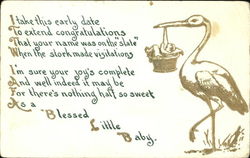 I take this early date
To extend congratulations
That your name was on the "slate"
When the stork made visitations
I'm sure your joy's complete
And well indeed it may be
For there's nothing half so sweet
As a
Blessed
Little
Baby.